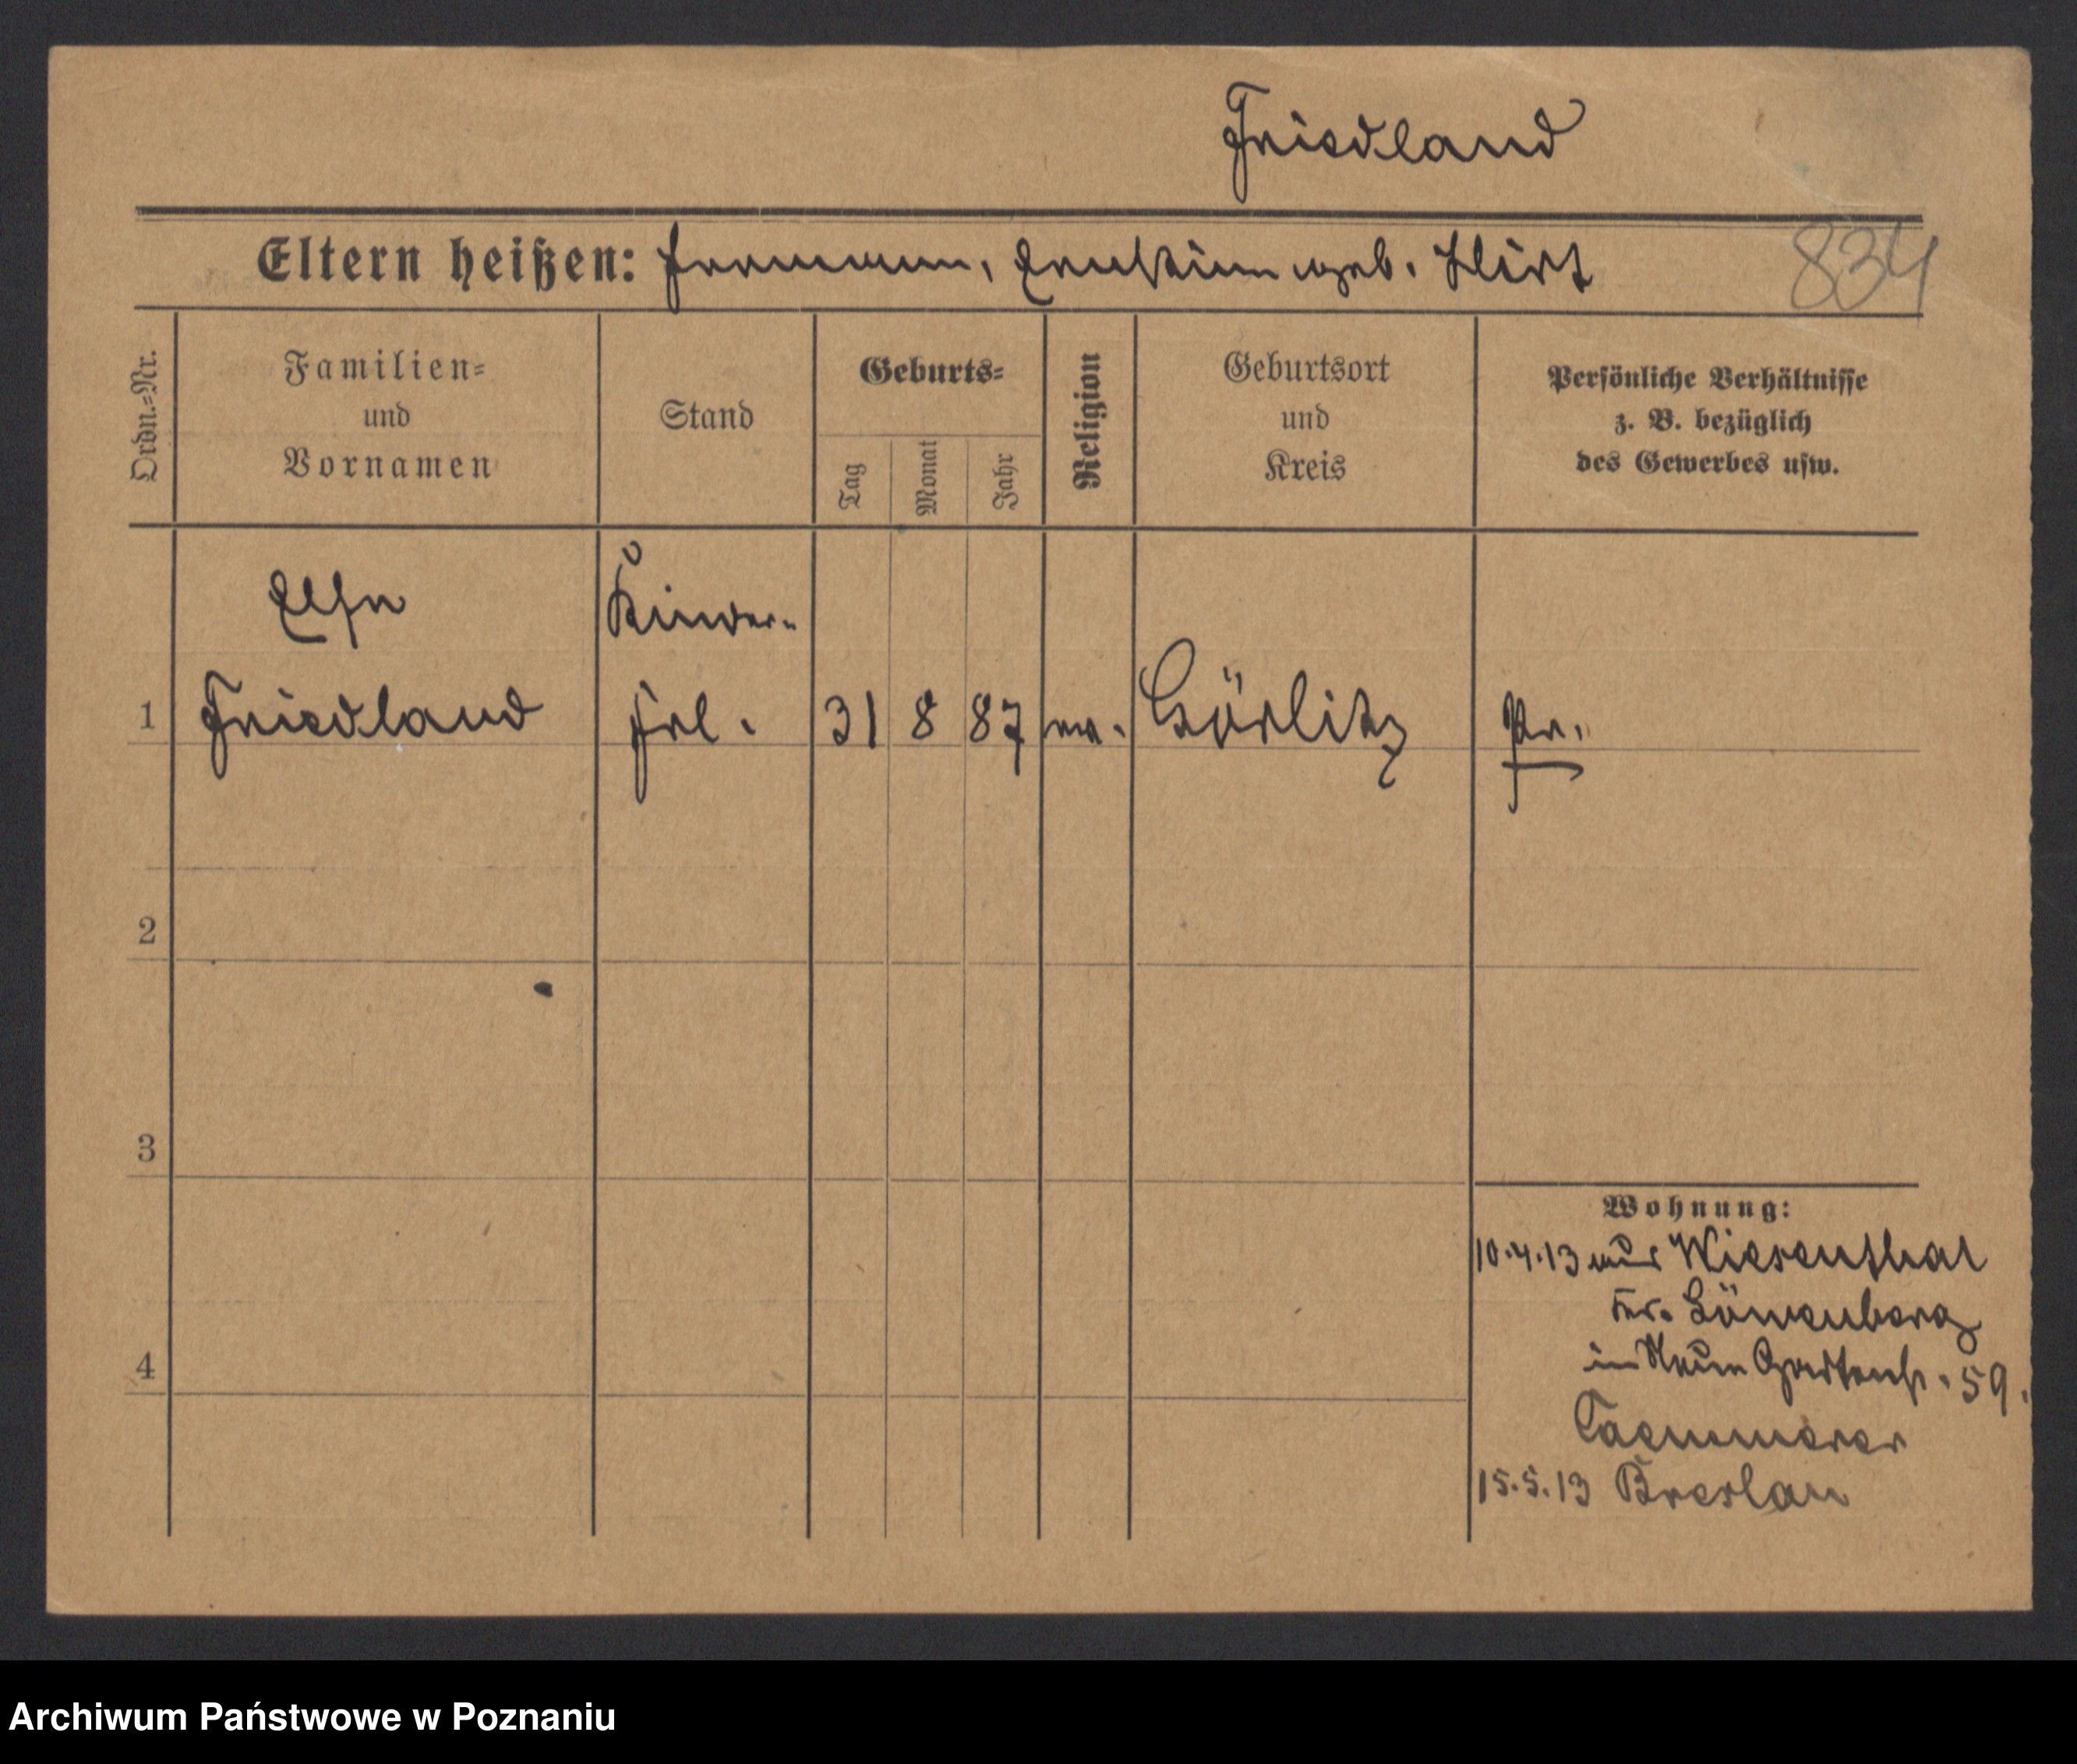 Friedland
Eltern heißen: Hermann, Ernstine geb. Hirt
834
Ordn.=Nr.
Familien=
und
Vornamen
Stand
Geburts=
Tag
Monat
Jahr
Religion
Geburtsort
und
Kreis
Persönliche Verhältnisse
z. B. bezüglich
des Gewerbes usw.
Else
Kinder-
1 Friedland frl. 31 8 87 ev. Görlitz Pr.
2
3
4
Wohnung:
10.4.13 aus Wiesenthal
Kr. Löwenberg
in Neue Gartenstr. 59.
Caemmerer
15.5.13 Breslau
Archiwum Państwowe w Poznaniu